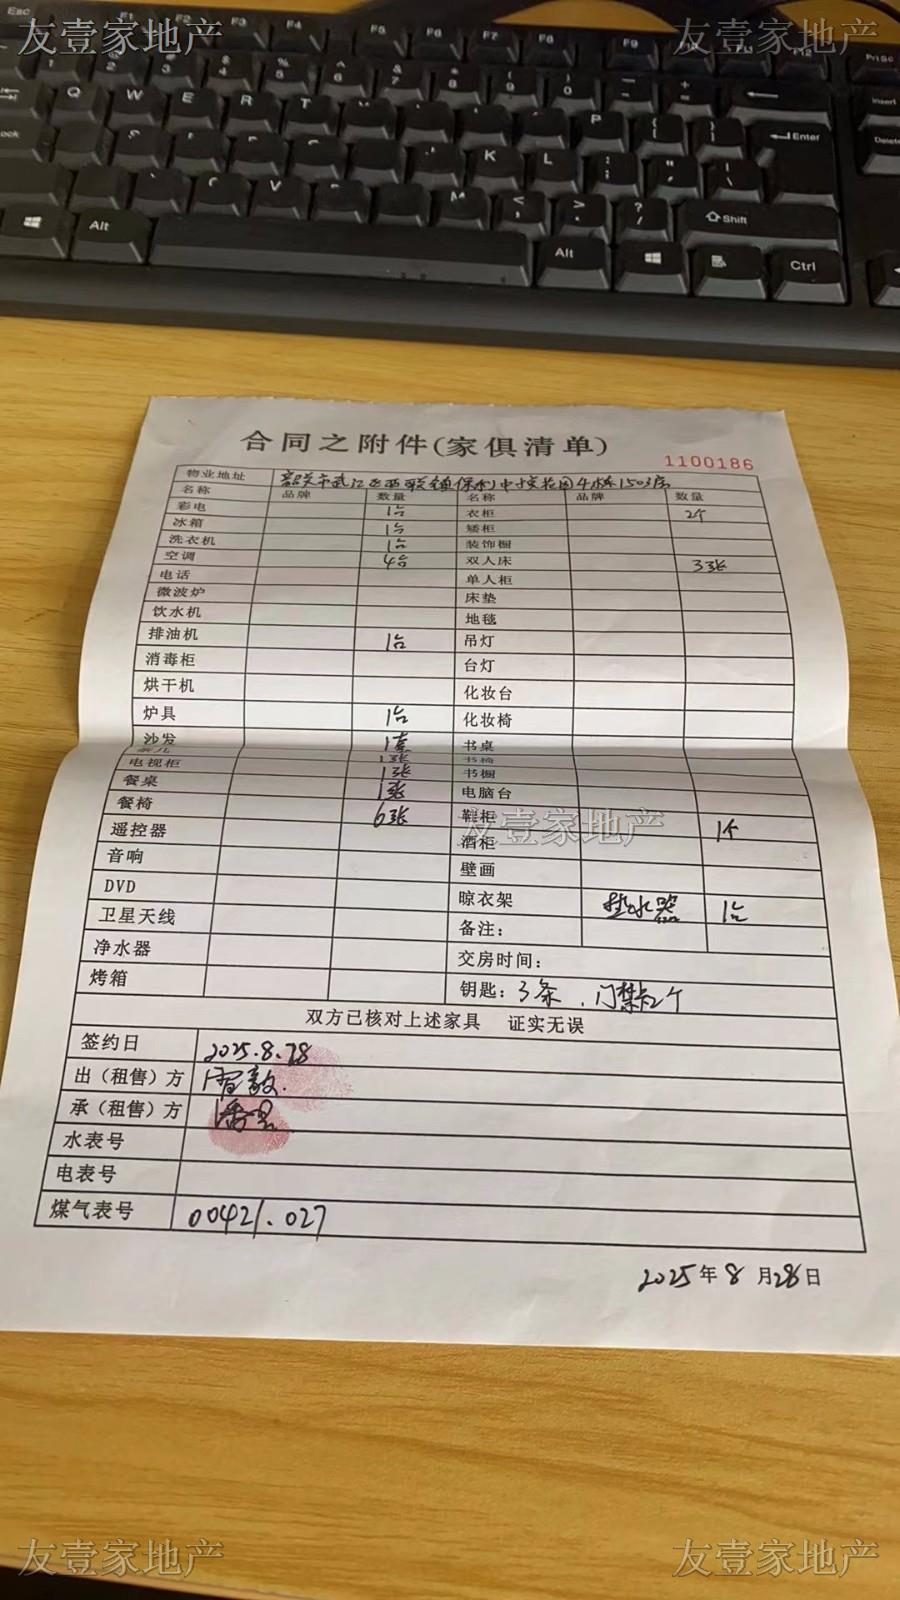 友壹家地产
友壹家地产
合同之附件(家俱清单)
1100186
物业地址 韶关市武江区西联镇保利中央花园4栋1503房
名称 品牌 数量 名称 品牌 数量
彩电 1台 衣柜 2个
冰箱 1台 矮柜
洗衣机 1台 装饰橱
空调 4台 双人床 3张
电话 单人柜
微波炉 床垫
饮水机 地毯
排油机 1台 吊灯
消毒柜 台灯
烘干机 化妆台
炉具 1台 化妆椅
沙发 1套 书桌
茶几 1张 书椅
电视柜 1张 书橱
餐桌 1张 电脑台
餐椅 6张 鞋柜 1个
遥控器 酒柜
音响 壁画
DVD 晾衣架 热水器 1台
卫星天线 备注:
净水器 交房时间:
烤箱 钥匙: 3条、门禁卡2个
友壹家地产
双方已核对上述家具 证实无误
签约日 2025.8.28
出(租售)方
承(租售)方
水表号
电表号
煤气表号 00421.027
2025年8月28日
友壹家地产
友壹家地产